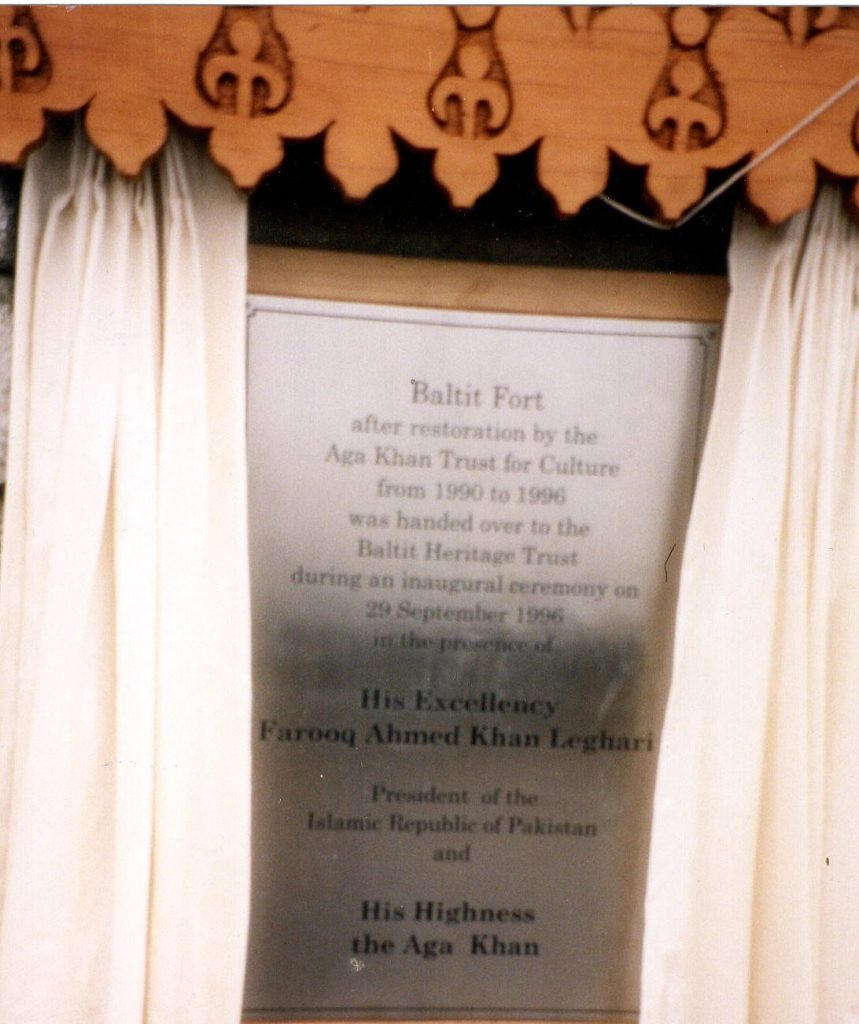 Baltit Fort
after restoration by the
Aga Khan Trust for Culture
from 1990 to 1996
was handed over to the
Baltit Heritage Trust
during an inaugural ceremony on
29 September 1996
in the presence of
His Excellency
Farooq Ahmed Khan Leghari
President of the
Islamic Republic of Pakistan
and
His Highness
the Aga Khan